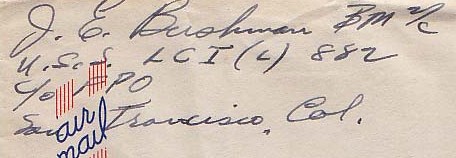 J. E. Bushman BM 2/c
U.S.S. LCI (L) 882
c/o FPO
San Francisco, Cal.
air
mail